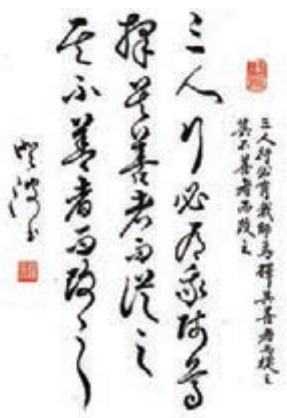 三人行必有我師焉擇其善者而從之
其不善者而改之
三人行必有我師焉
擇其善者而從之
其不善者而改之